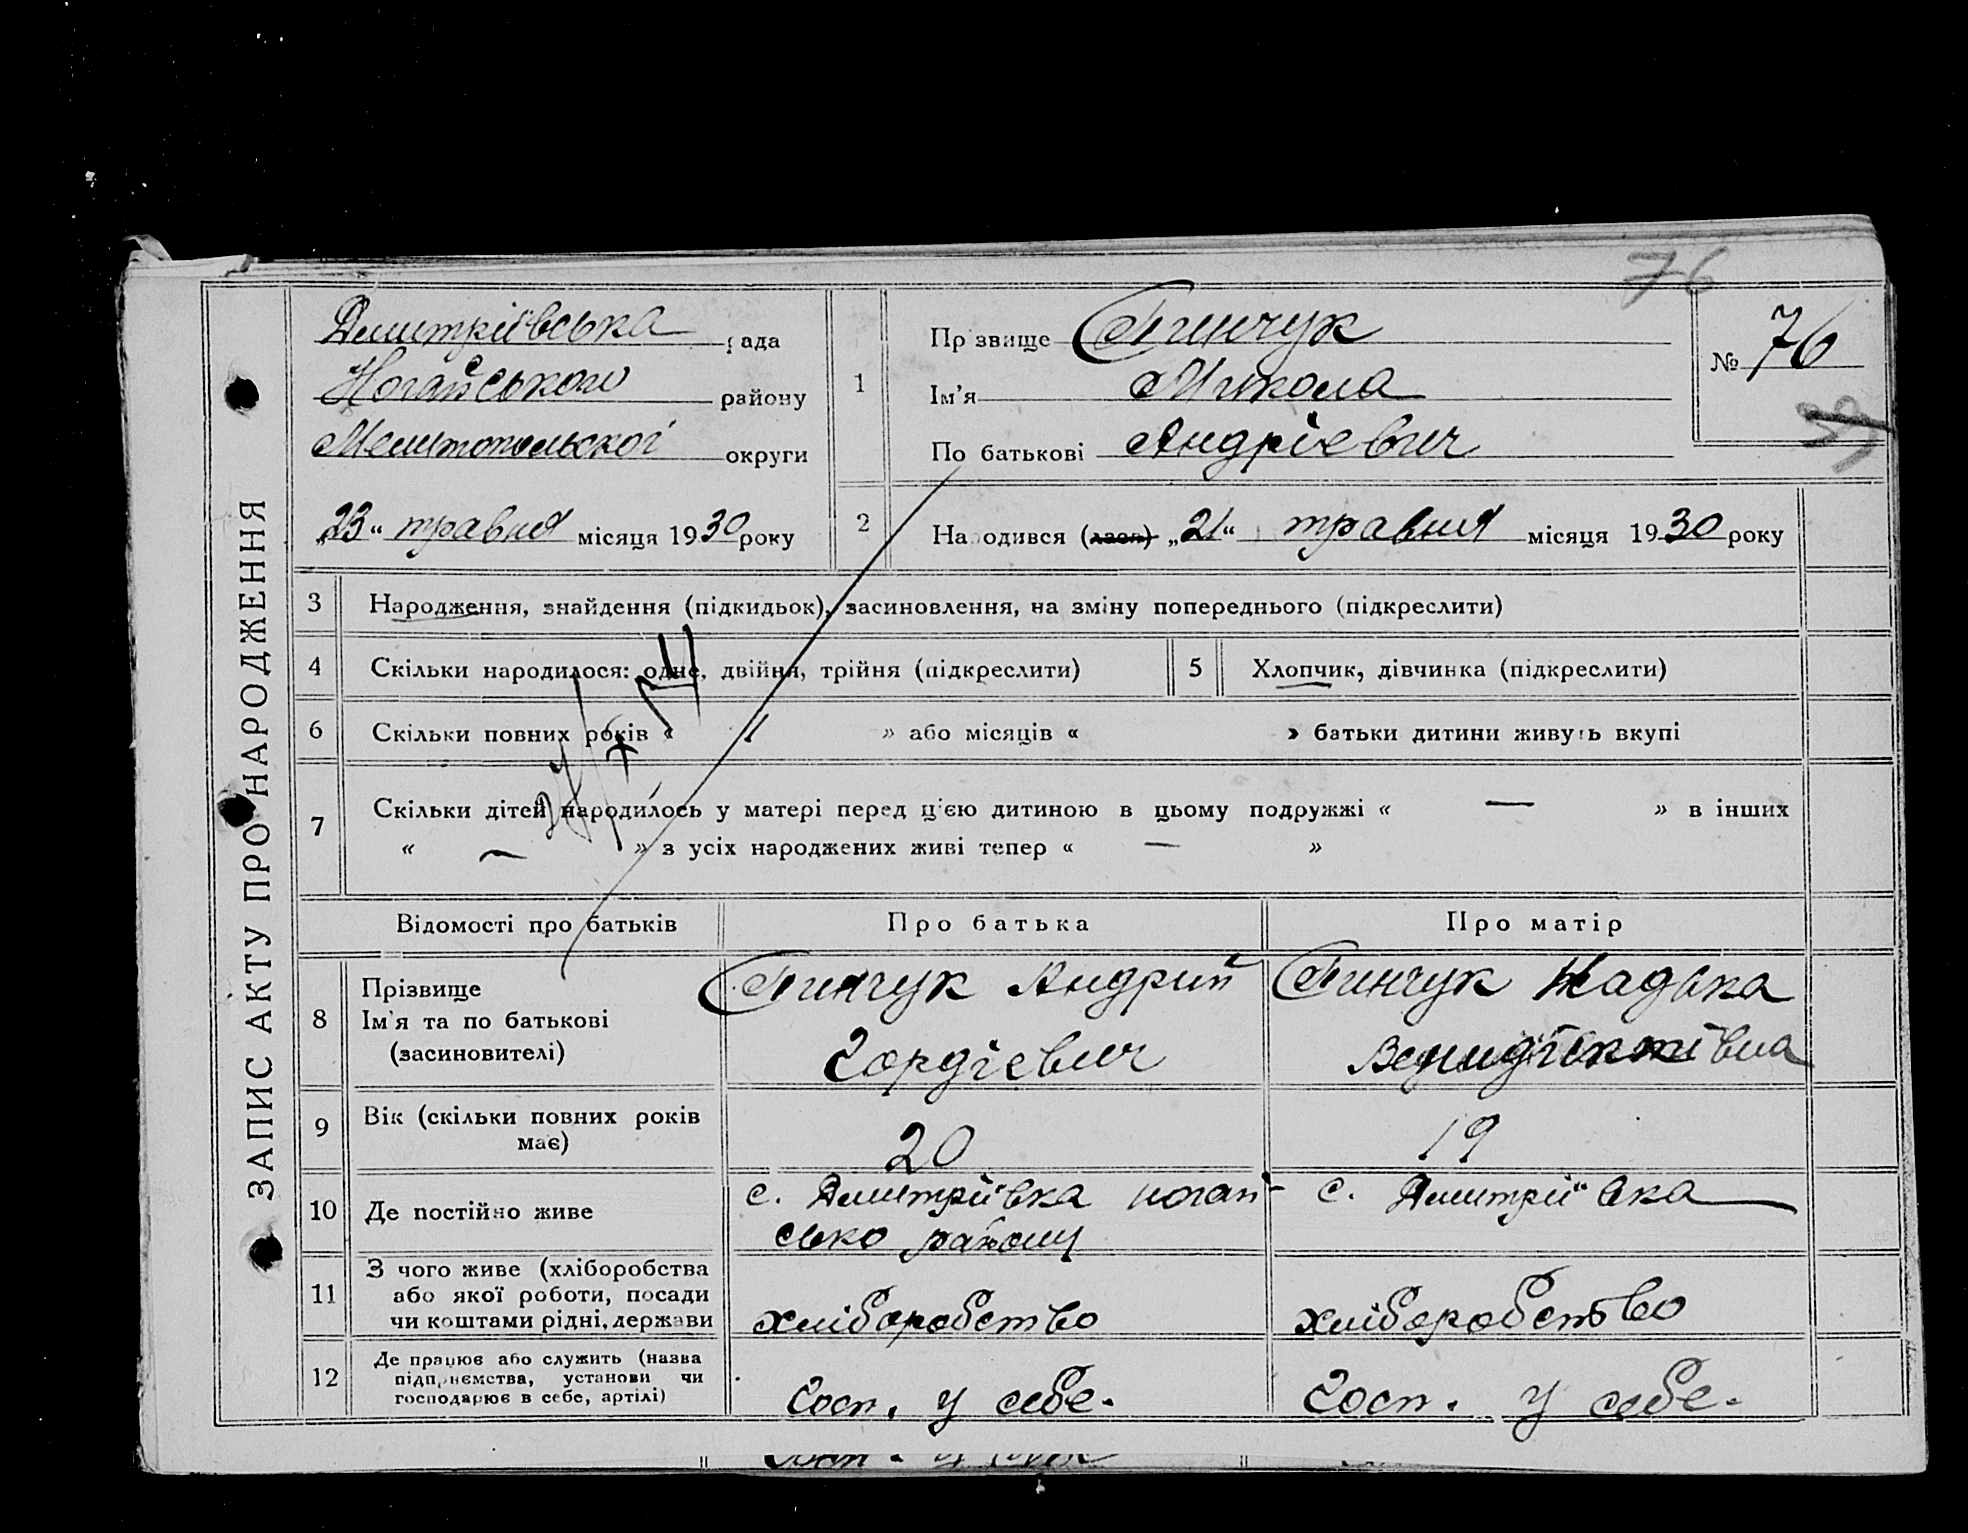 76
ЗАПИС АКТУ ПРО НАРОДЖЕННЯ
Дмитріївська рада
Ногайського району
Мелитопольської округи
„23“ травня місяця 1930 року
1
Прізвище Пинчук
Ім’я Микола
По батькові Андрієвич
№ 76
2 Народився (лася) „21“ травня місяця 1930 року
3 Народження, знайдення (підкидьок), засиновлення, на зміну попереднього (підкреслити)
4 Скільки народилося: одне, двійня, трійня (підкреслити) 5 Хлопчик, дівчинка (підкреслити)
6 Скільки повних років « 1 » або місяців « » батьки дитини живуть вкупі
7 Скільки дітей народилось у матері перед цією дитиною в цьому подружжі « — » в інших
« — » з усіх народжених живі тепер « — »
Відомості про батьків Про батька Про матір
8 Прізвище
Ім’я та по батькові
(засиновителі)
Пинчук Андрий
Гордієвич
Пинчук Надька
9 Вік (скільки повних років
має)
20
19
10 Де постійно живе
с. Дмитріївка ногай-
сько району
с. Дмитріївка
11 З чого живе (хліборобства
або якої роботи, посади
чи коштами рідні, держави
хліборобство
хліборобство
12 Де працює або служить (назва
підприємства, установи чи
господарює в себе, артілі)
Госп. у себе.
Госп. у себе.